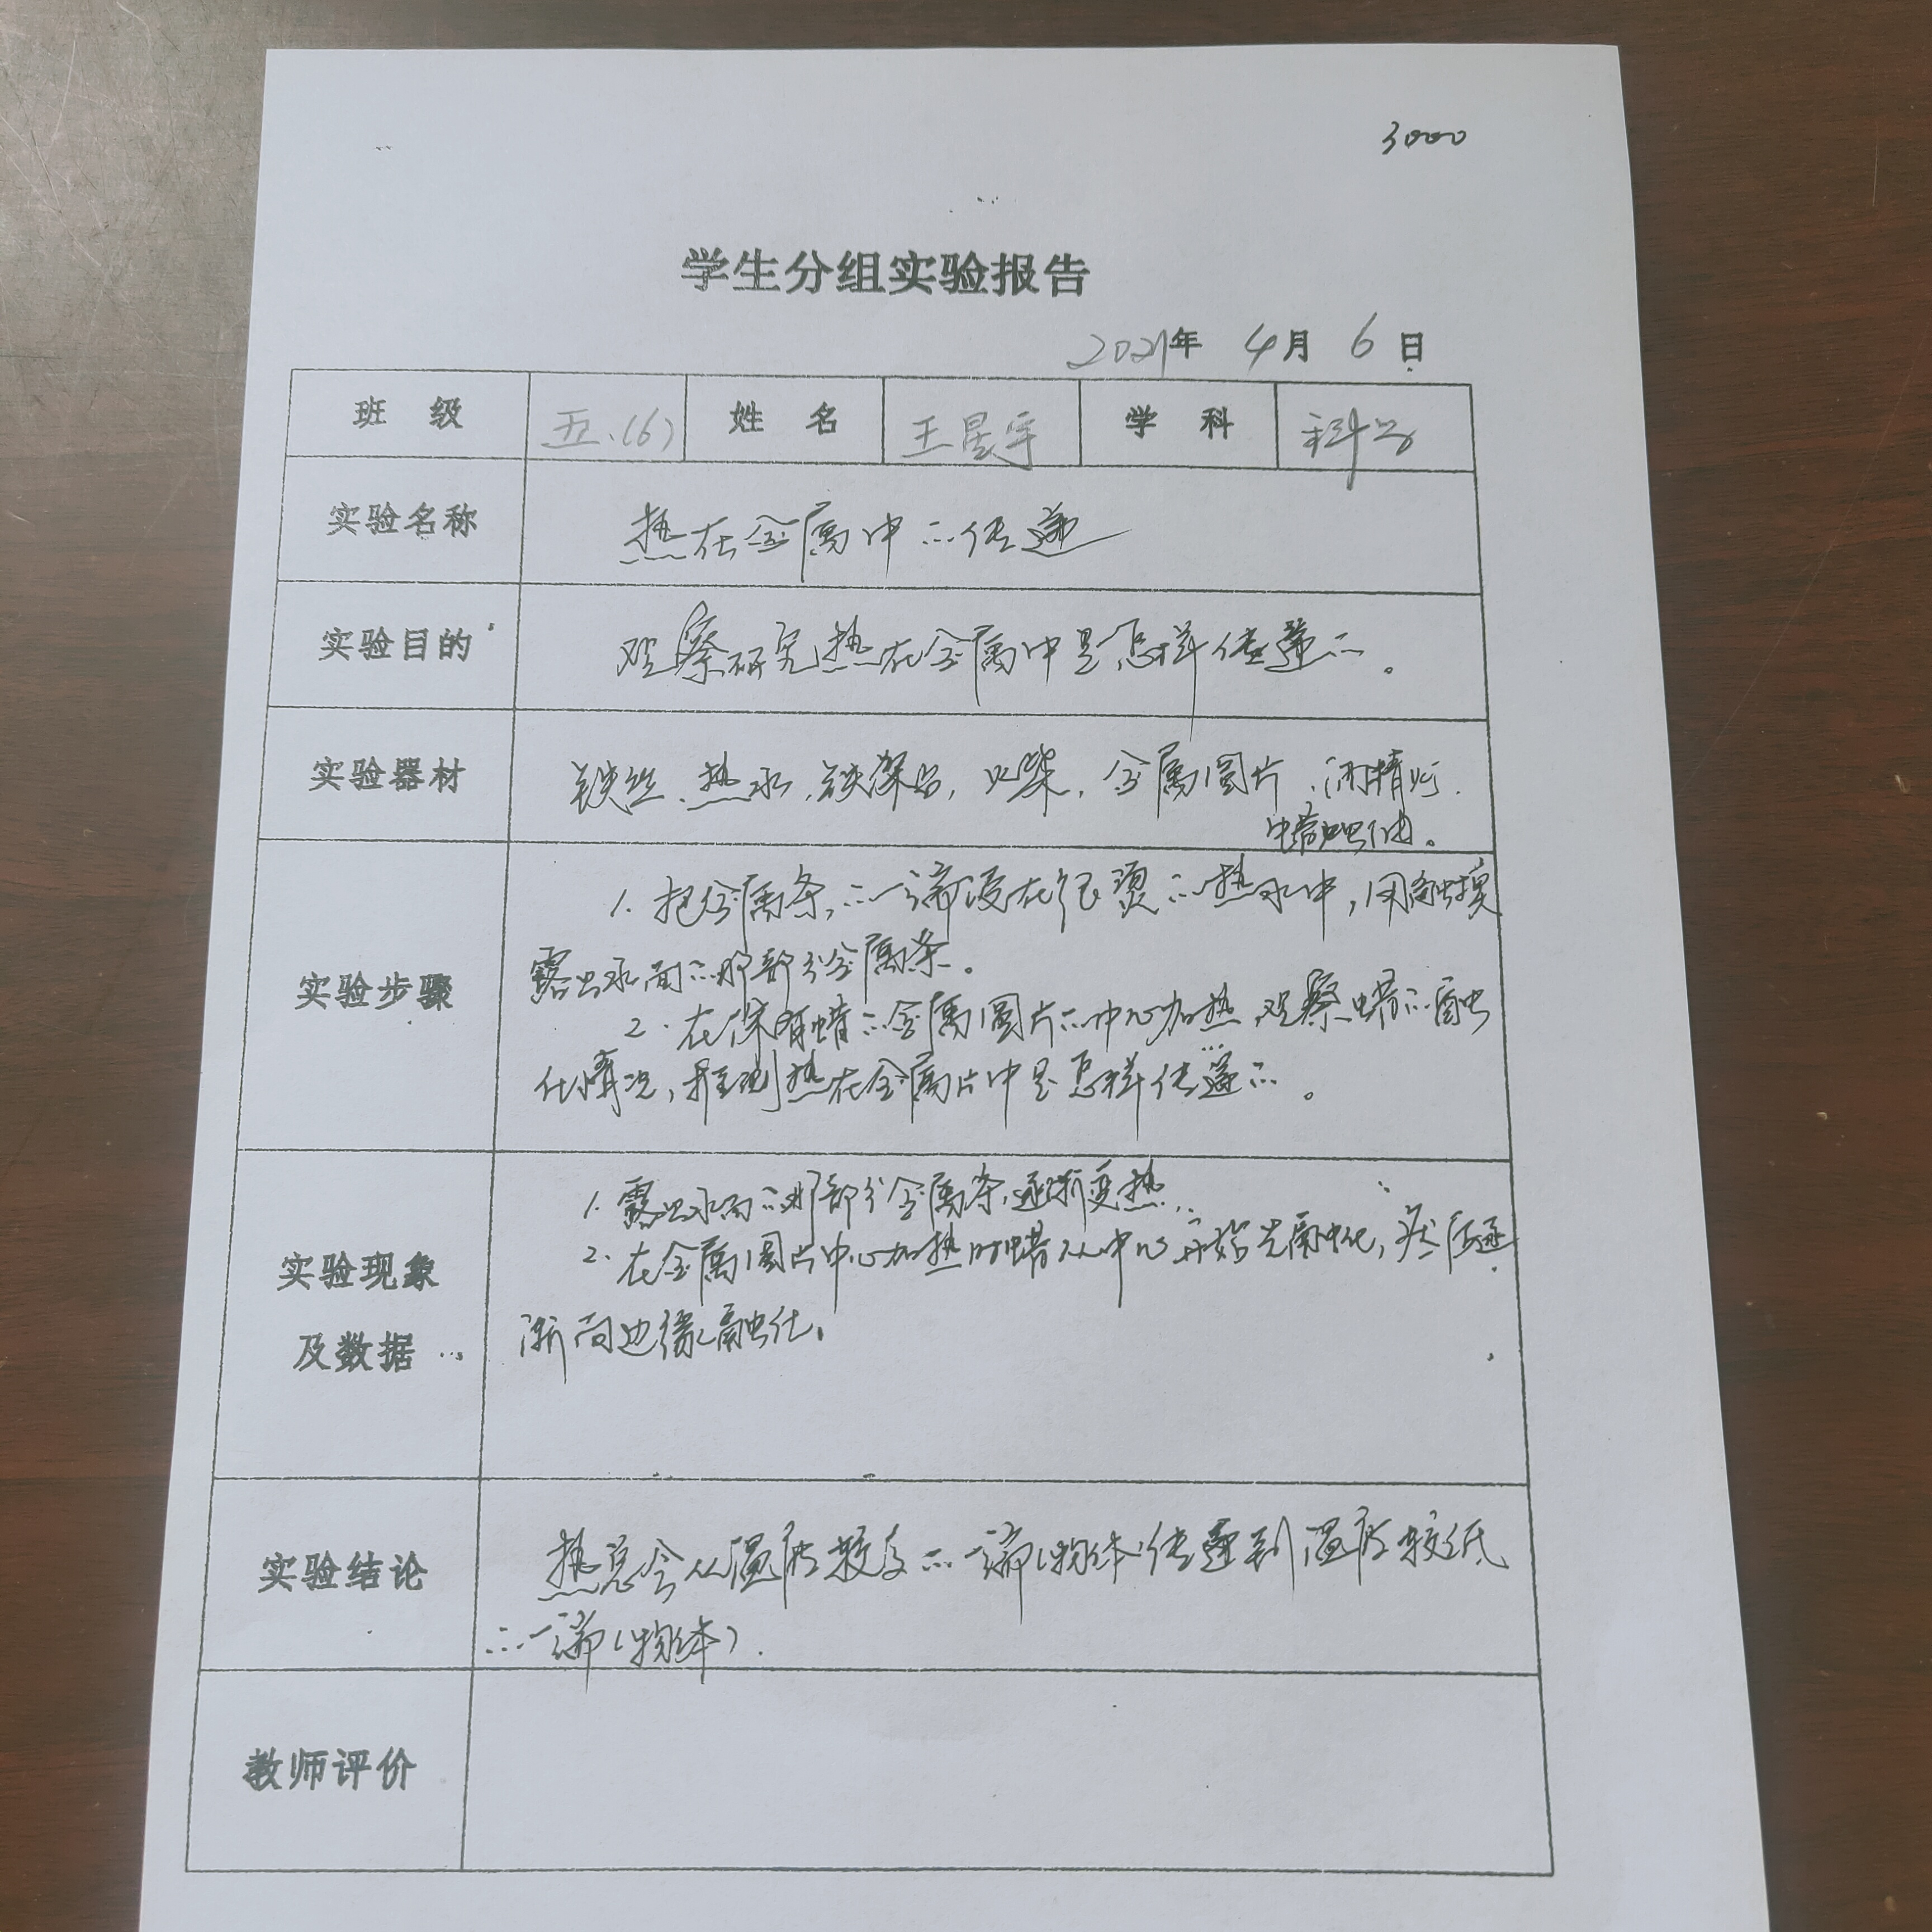 3000
学生分组实验报告
2021年 4月 6日
班 级 五.(6) 姓 名 王星宇 学 科 科学
实验名称 热在金属中的传递
实验目的 观察研究热在金属中是怎样传递的。
实验器材 铁丝、热水、铁架台，火柴，金属圆片、酒精灯、
蜡烛油。
1. 把金属条的一端浸在很烫的热水中，用触摸
露出水面的那部分金属条。
实验步骤
2. 在有蜡的金属圆片的中心加热，观察蜡的融
化情况，推测热在金属片中是怎样传递的。
1. 露出水面的那部分金属条，逐渐变热.
2. 在金属圆片中心加热时蜡从中心开始先融化，然后逐
渐向边缘融化。
实验现象
及数据
热总会从温度较高的一端(物体)传递到温度较低
实验结论
的一端(物体).
教师评价